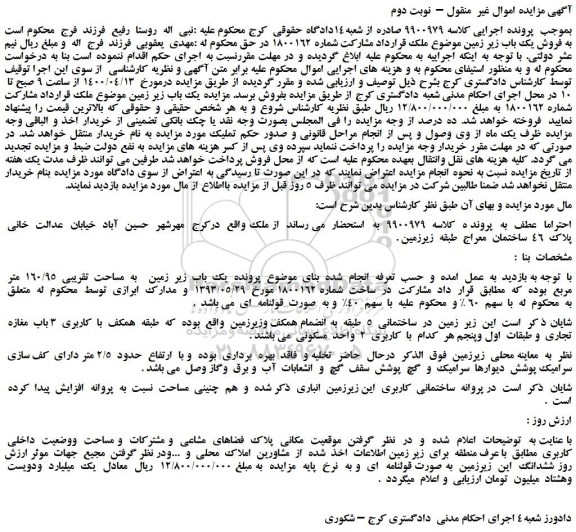 آگهی مزایده اموال غیر منقول – نوبت دوم
بموجب پرونده اجرایی کلاسه ۹۹۰۰۹۷۹ صادره از شعبه ۱۴ دادگاه حقوقی کرج محکوم علیه :نبی اله روستا رفیع فرزند فرج محکوم است
به فروش یک باب زیر زمین موضوع ملک قرارداد مشارکت شماره ۱۸۰۰۱۶۲ در حق محکوم له :مهدی یعقوبی فرزند فرج اله و مبلغ ریال نیم
عشر دولتی. با توجه به اینکه اجراییه به محکوم علیه ابلاغ گردیده و در مهلت مقرر نسبت به اجرای حکم اقدام ننموده است بنا به درخواست
محکوم له و به منظور استیفای محکوم به و هزینه های اجرایی اموال محکوم علیه برابر متن آگهی و نظریه کارشناسی از سوی این اجرا توقیف
توسط کارشناس دادگستری کرج بشرح ذیل توصیف و ارزیابی شده و مقرر گردیده از طریق مزایده درمورخ ۱۴۰۰/۰۴/۱۳ از ساعت ۹ صبح تا
۱۰ در محل اجرای احکام مدنی شعبه دادگستری کرج از طریق مزایده بفروش برسد. مزایده یک باب زیر زمین موضوع ملک قرارداد مشارکت
شماره ۱۸۰۰۱۶۲ به مبلغ ۱۲/۸۰۰/۰۰۰/۰۰۰ ریال طبق نظریه کارشناس شروع و به هر شخص حقیقی و حقوقی که بالاترین قیمت را پیشنهاد
نمایید فروخته خواهد شد. ده درصد از وجه مزایده را فی المجلس بصورت وجه نقد یا چک بانکی تضمینی از خریدار اخذ و الباقی وجه
مزایده ظرف یک ماه از وی وصول و پس از انجام مراحل قانونی و صدور حکم تملیک مورد مزایده به نام خریدار منتقل خواهد شد. در
صورتی که در مهلت مقرر خریدار وجه مزایده را پرداخت ننماید سپرده وی پس از کسر هزینه های مزایده به نفع دولت ضبط و مزایده تجدید
می گردد. کلیه هزینه های نقل وانتقال بعهده محکوم علیه است که از محل فروش پرداخت خواهد شد طرفین می توانند ظرف مدت یک هفته
از تاریخ مزایده نسبت به نحوه انجام مزایده اعتراض نمایند که در این صورت تا رسیدگی به اعتراض از سوی دادگاه مورد مزایده بنام خریدار
منتقل نخواهد شد ضمنا طالبین شرکت در مزایده می توانند ظرف ۵ روز قبل از مزایده بااطلاع از مال مورد مزایده بازدید نمایند.
مال مورد مزایده و بهای آن طبق نظر کارشناس بدین شرح است:
احتراما عطف به پرونده کلاسه ۹۹۰۰۹۷۹ به استحضار می رساند از ملک واقع درکرج مهرشهر حسین آباد خیابان عدالت خانی
پلاک ٤٦ ساختمان معراج طبقه زیرزمین .
مشخصات بنا :
با توجه به بازدید به عمل امده و حسب تعرفه انجام شده بنای موضوع پرونده یک باب زیر زمین به مساحت تقریبی ۱۶۰/۹۵ متر
مربع بوده که مطابق قرار داد مشارکت در ساخت شماره ۱۸۰۰۱۶۲ مورخ ۱۳۹۳/۰۵/۲۹ و مدارک ابرازی توسط محکوم له متعلق
به محکوم له با سهم ۶۰ % و محکوم علیه با سهم ۴۰% و به صورت قولنامه ای می باشد .
شایان ذکر است این زیر زمین در ساختمانی ۵ طبقه به انضمام همکف وزیرزمین واقع بوده که طبقه همکف با کاربری ۳ باب مغازه
تجاری و طبقات اول وپنجم هر کدام با کاربری ۲ واحد مسکونی می باشند .
نظر به معاینه محلی زیرزمین فوق الذکر درحال حاضر تخلیه و فاقد بهره برداری بوده و با ارتفاع حدود ۲/۵ متر دارای کف سازی
سرامیک پوشش دیوارها سرامیک و گچ پوشش سقف گچ و انشعابات آب و برق وگاز وصل می باشد .
شایان ذکر است در پروانه ساختمانی کاربری این زیرزمین انباری ذکر شده و هم چنینی مساحت نسبت به پروانه افزایش پیدا کرده
است .
ارزش روز :
با عنایت به توضیحات اعلام شده و در نظر گرفتن موقعیت مکانی پلاک فضاهای مشاعی و مشترکات و مساحت ووضعیت داخلی
کاربری مطابق با عرف منطقه برای زیر زمین اطلاعات اخذ شده از مشاورین املاک محلی و ...ودر نظر گرفتن مجیع جهات موثر ارزش
روز ششدانگ این زیرزمین به صورت قولنامه ای و به نرخ پایه مزایده به مبلغ ۱۲/۸۰۰/۰۰۰/۰۰۰ ریال معادل یک میلیارد ودویست
وهشتاد میلیون تومان ارزیابی و اعلام میگردد .
دادورز شعبه ٤ اجرای احکام مدنی دادگستری کرج – شکوری